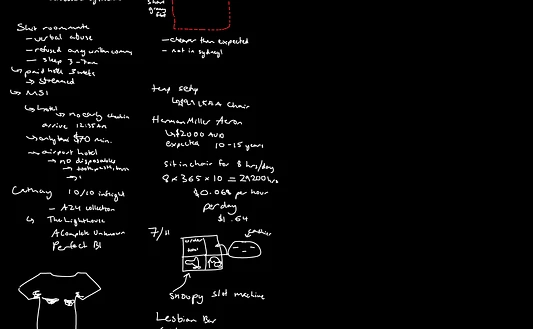 Shit roommate
- verbal abuse
- refused any written comm
- sleep 3-7am
↳ paid hotel 3 weeks
→ streamed
↳ MSI
↳ hotel
↳ no early checkin
arrive 12:35AM
→ airport hotel
→ no disposables
→ toothpaste,
Cathay 10/10 inflight
- A24 collection
↳ The Lighthouse
A Complete Unknown
Perfect Bl
- cheaper than expected
- not in sydney!
temp setup
chair
Herman Miller Aeron
↳ $2000 AUD
expected 10-15 years
sit in chair for 8 hrs/day
8 × 365 × 10 = 29200 hrs
$0.068 per hour
per day
$1.64
7/11
cashier
snoopy slot machine
Lesbian Bar